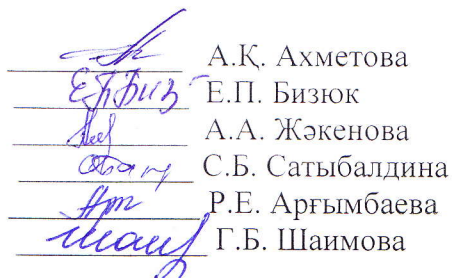 А.Қ. Ахметова
Е.П. Бизюк
А.А. Жәкенова
С.Б. Сатыбалдина
Р.Е. Арғымбаева
Г.Б. Шаимова